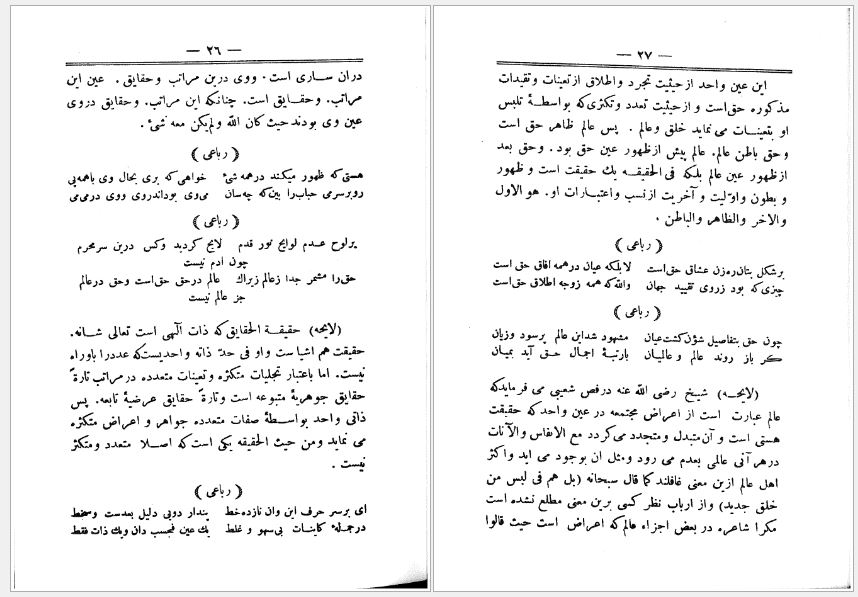 — ٢٦ —
دران ساری است. ووی درین مراتب وحقایق. عین این
مراتب. وحقایق است. چنانکه این مراتب. وحقایق دروی
عین وی بودند حیث کان الله ولم یکن معه شیء.
(رباعی)
هستی که ظهور میکند درهمه شیء خواهی که بری بحال وی باهمه پی
روبرسرمی حباب را بین که چه سان می وی بود اندروی ووی درمی می
(رباعی)
برلوح عدم لوایح نور قدم لایح کردید وکس درین سرمحرم
چون ادم نیست
حق را مشمر جدا زعالم زیراك عالم درحق حق است وحق درعالم
جز عالم نیست
(لایحه) حقیقة الحقایق که ذات الهی است تعالی شانه.
حقیقت هم اشیاست واو فی حد ذاته واحدیست که عدد را باوراه
نیست. اما باعتبار تجلیات متکثره وتعینات متعدده درمراتب تارة
حقایق جوهریهٔ متبوعه است وتارة حقایق عرضیهٔ تابعه. پس
ذاتی واحد بواسطهٔ صفات متعدده جواهر و اعراض متکثره
می نماید ومن حیث الحقیقه یکی است که اصلا متعدد ومتکثر
نیست.
(رباعی)
ای برسر حرف این وان نازده خط پندار دویی دلیل بعدست وسخط
درجملهٔ کاینات بی سهو و غلط یك عین فحسب دان ویك ذات فقط
— ٢٧ —
این عین واحد از حیثیت تجرد واطلاق از تعینات وتقیدات
مذکوره حق است و از حیثیت تعدد وتکثری که بواسطهٔ تلبس
او بتعینات می نماید خلق وعالم. پس عالم ظاهر حق است
وحق باطن عالم. عالم پیش از ظهور عین حق بود. وحق بعد
از ظهور عین عالم بلکه فی الحقیقه یك حقیقت است و ظهور
و بطون واولیت و آخریت از نسب واعتبارات او. هو الاول
والاخر والظاهر والباطن.
(رباعی)
برشکل بتان ره زن عشاق حق است لابلکه عیان درهمه افاق حق است
چیزی که بود زروی تقیید جهان والله که همه زوجه اطلاق حق است
(رباعی)
چون حق بتفاصیل شؤن کشت عیان مشهود شداین عالم پرسود وزیان
کر باز روند عالم وعالمیان بارتبهٔ اجمال حق آید بمیان
(لایحه) شیخ رضی الله عنه درفص شعیبی می فرماید که
عالم عبارت است از اعراض مجتمعه در عین واحد که حقیقت
هستی است و آن متبدل ومتجدد می کردد مع الانفاس والآنات
درهر آنی عالمی بعدم می رود ومثل ان بوجود می اید واکثر
اهل عالم ازین معنی غافلند کما قال سبحانه (بل هم فی لبس من
خلق جدید) واز ارباب نظر کسی برین معنی مطلع نشده است
مکر اشاعره در بعض اجزاء عالم که اعراض است حیث قالوا